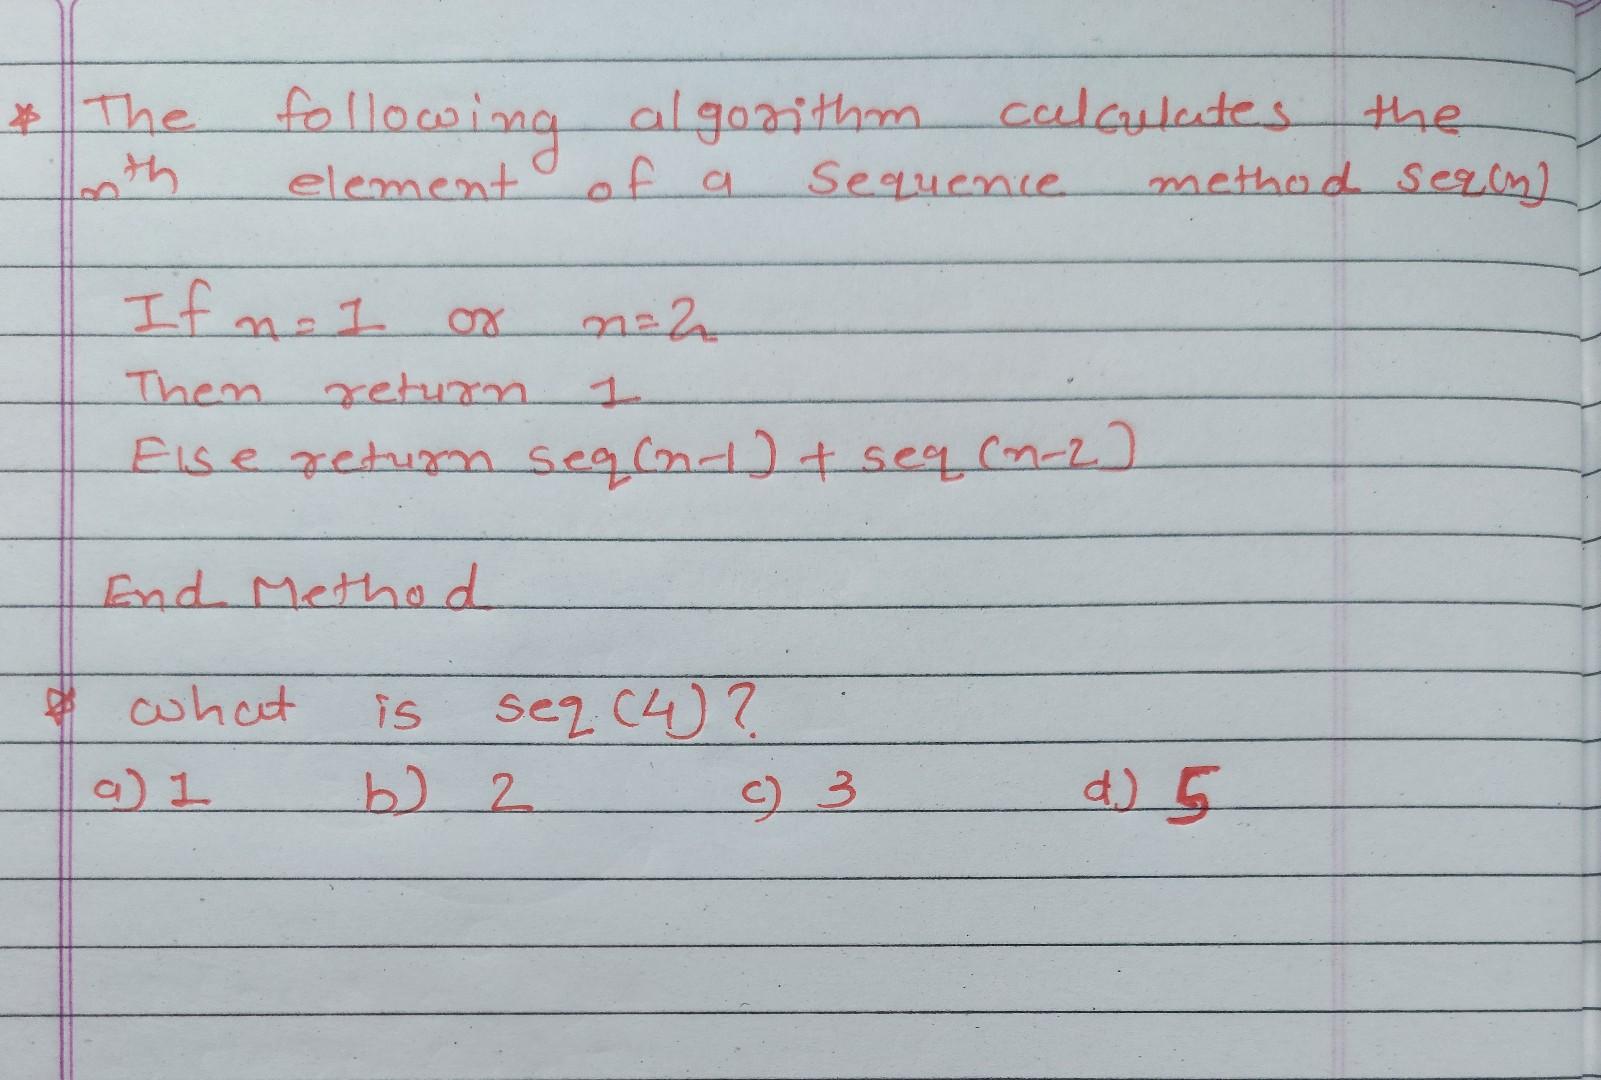 * The following algorithm calculates the
nth element of a sequence method seq(n)
If n=1 or n=2
Then return 1
Else return seq(n-1) + seq(n-2)
End Method
* what is seq(4)?
a) 1 b) 2 c) 3 d) 5